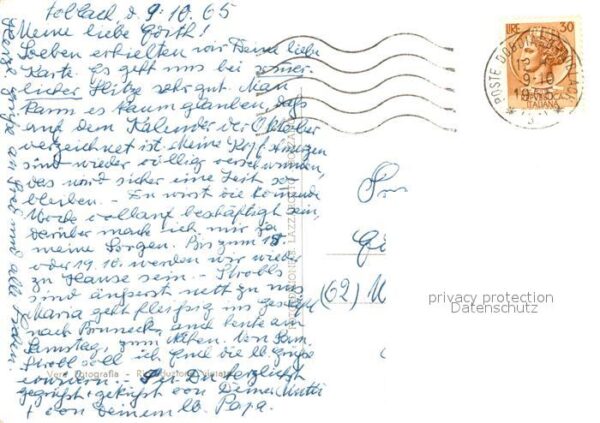 Toblach, d. 9.10.65
Meine liebe Görth!
Soeben erhielten wir Deine liebe
Karte. Es geht uns bei sommer-
licher Hitze sehr gut. Man
kann es kaum glauben, daß
auf dem Kalender der Oktober
verzeichnet ist. Meine
sind wieder völlig verschwunden,
das wird sicher eine Zeit so
bleiben. – Du wirst die kommende
Woche vollauf beschäftigt sein,
darüber mach ich mir ja
meine Sorgen. Bis zum 18.
oder 19.10. werden wir wieder
zu Hause sein. – Strobls
sind äußerst nett zu uns
Maria geht fleißig ins
nach Bruneck, auch heute am
Samstag, zum Nähen. Von Fam.
Strobl soll ich Euch die lb. Grüße
erwidern. – Sei Du herzlichst
gegrüßt, geküßt von Deiner Mutti
+ von Deinem lb. Papa.
Herzl. Grüße an und alle
Vera Fotografia
LIRE 30
ITALIANA
POSTE
9-10
1965
(62)
privacy protection
Datenschutz